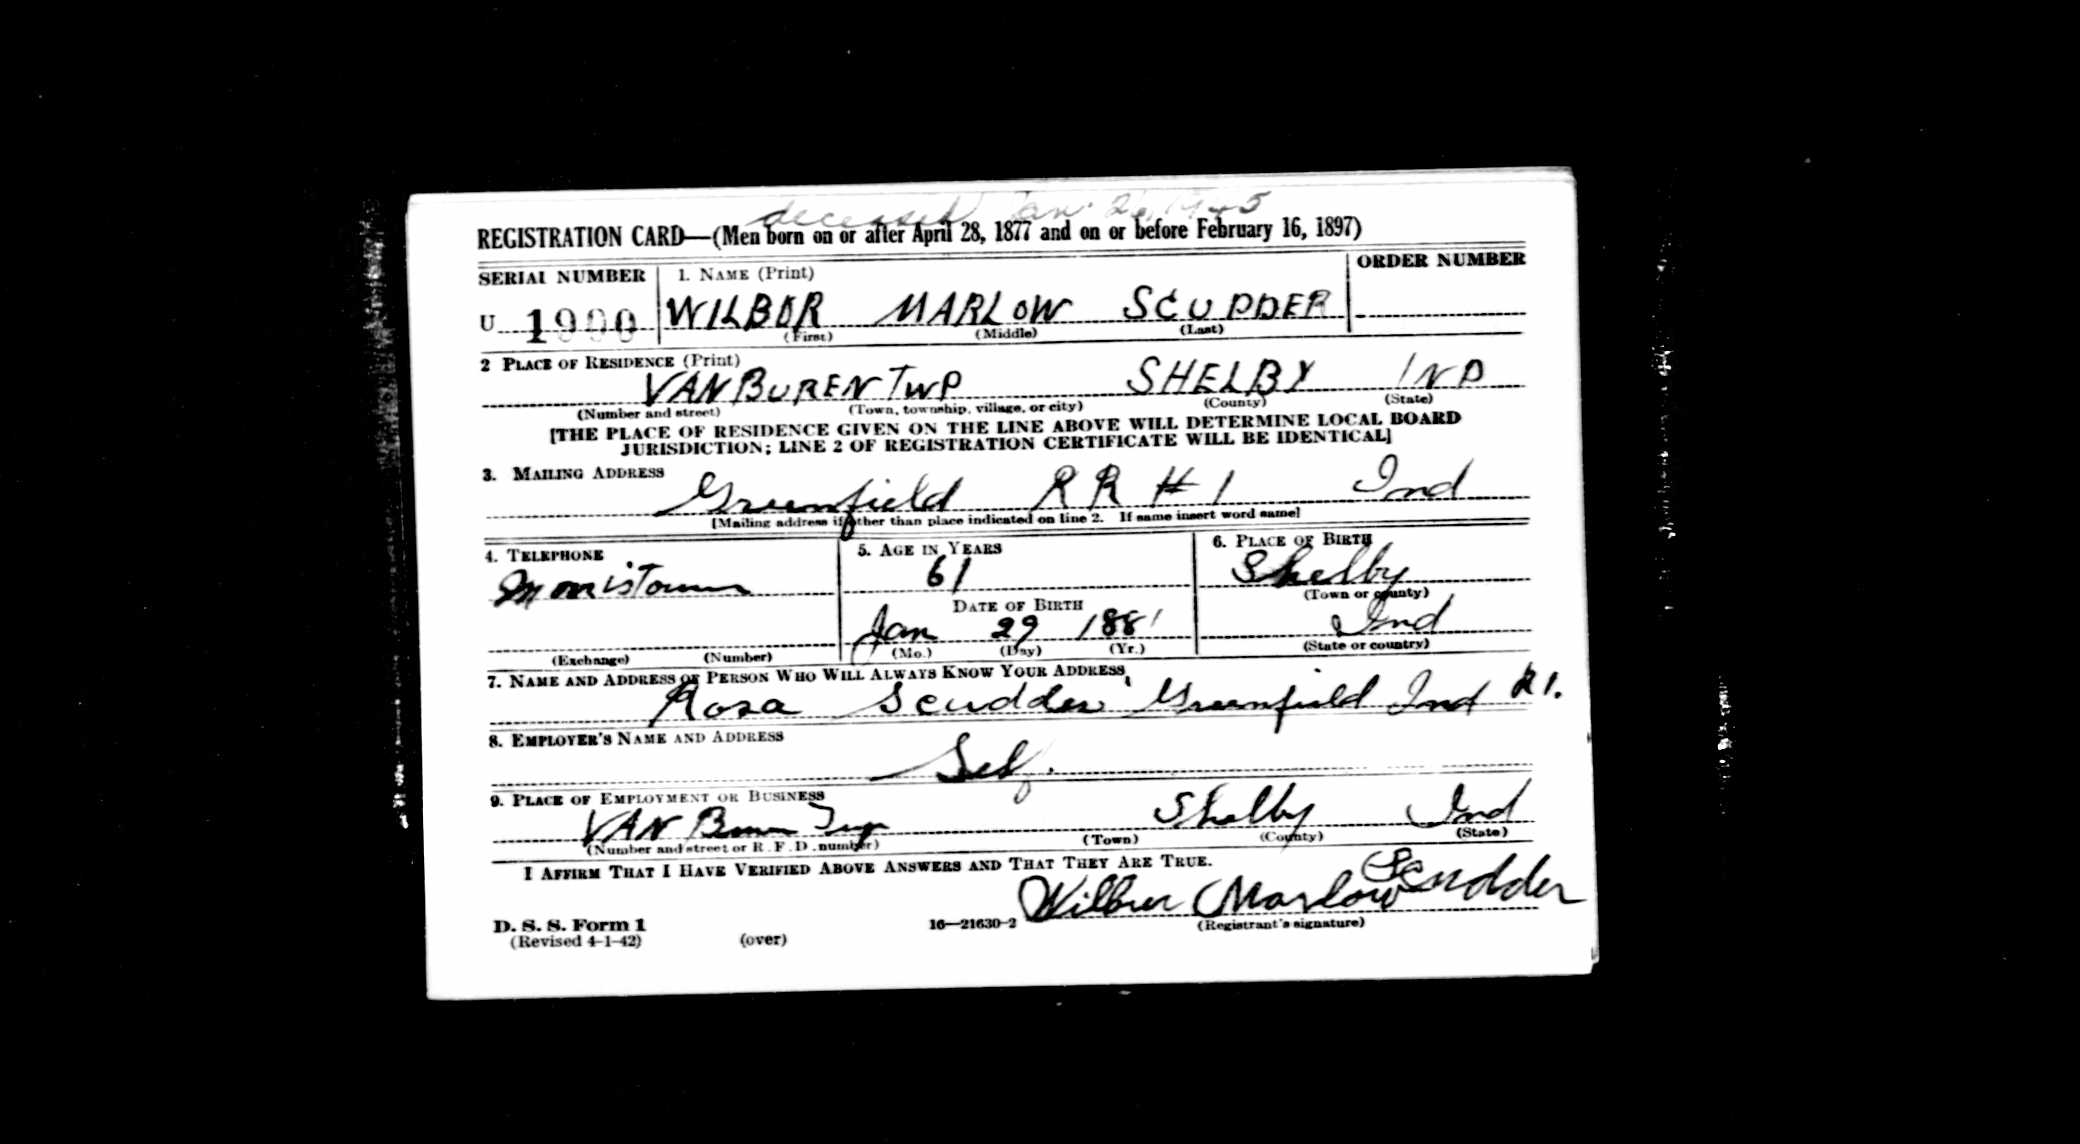 deceased Jan. 26, 1945
REGISTRATION CARD—(Men born on or after April 28, 1877 and on or before February 16, 1897)
SERIAL NUMBER 1. NAME (Print) ORDER NUMBER
U 1900 WILBUR MARLOW SCUDDER
(First) (Middle) (Last)
2 PLACE OF RESIDENCE (Print)
VAN BUREN TWP SHELBY IND
(Number and street) (Town, township, village, or city) (County) (State)
[THE PLACE OF RESIDENCE GIVEN ON THE LINE ABOVE WILL DETERMINE LOCAL BOARD
JURISDICTION; LINE 2 OF REGISTRATION CERTIFICATE WILL BE IDENTICAL]
3. MAILING ADDRESS
Greenfield RR #1 Ind
[Mailing address if other than place indicated on line 2. If same insert word same]
4. TELEPHONE 5. AGE IN YEARS 6. PLACE OF BIRTH
Morristown 61 Shelby
(Town or county)
DATE OF BIRTH
Jan 29 1881 Ind
(Exchange) (Number) (Mo.) (Day) (Yr.) (State or country)
7. NAME AND ADDRESS OF PERSON WHO WILL ALWAYS KNOW YOUR ADDRESS
Rosa Scudder Greenfield Ind R1.
8. EMPLOYER'S NAME AND ADDRESS
Self.
9. PLACE OF EMPLOYMENT OR BUSINESS
VAN Buren Twp Shelby Ind
(Number and street or R. F. D. number) (Town) (County) (State)
I AFFIRM THAT I HAVE VERIFIED ABOVE ANSWERS AND THAT THEY ARE TRUE.
Wilbur Marlow Scudder
D. S. S. Form 1 16—21630-2 (Registrant's signature)
(Revised 4-1-42) (over)